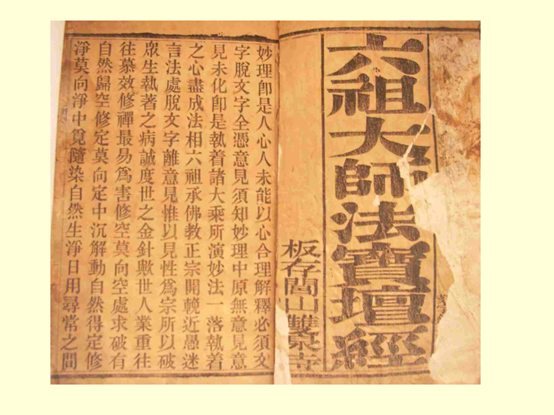 六祖大師法寶壇經
板存閭山雙泉寺
妙理卽是人心人未能以心合理解釋必須文
字脫文字全憑意見須知妙理中原無意見意
見未化卽是執着諸大乘所演妙法一落執着
之心盡成法相六祖承佛教正宗開輓近愚迷
言法處脫文字離意見惟以見性爲宗所以破
衆生執着之病誠度世之金針歟世人業重往
往慕效修禪最易爲害修空莫向空處求破有
自然歸空修定莫向定中沉解動自然得定修
淨莫向淨中覓隨染自然生淨日用尋常之間